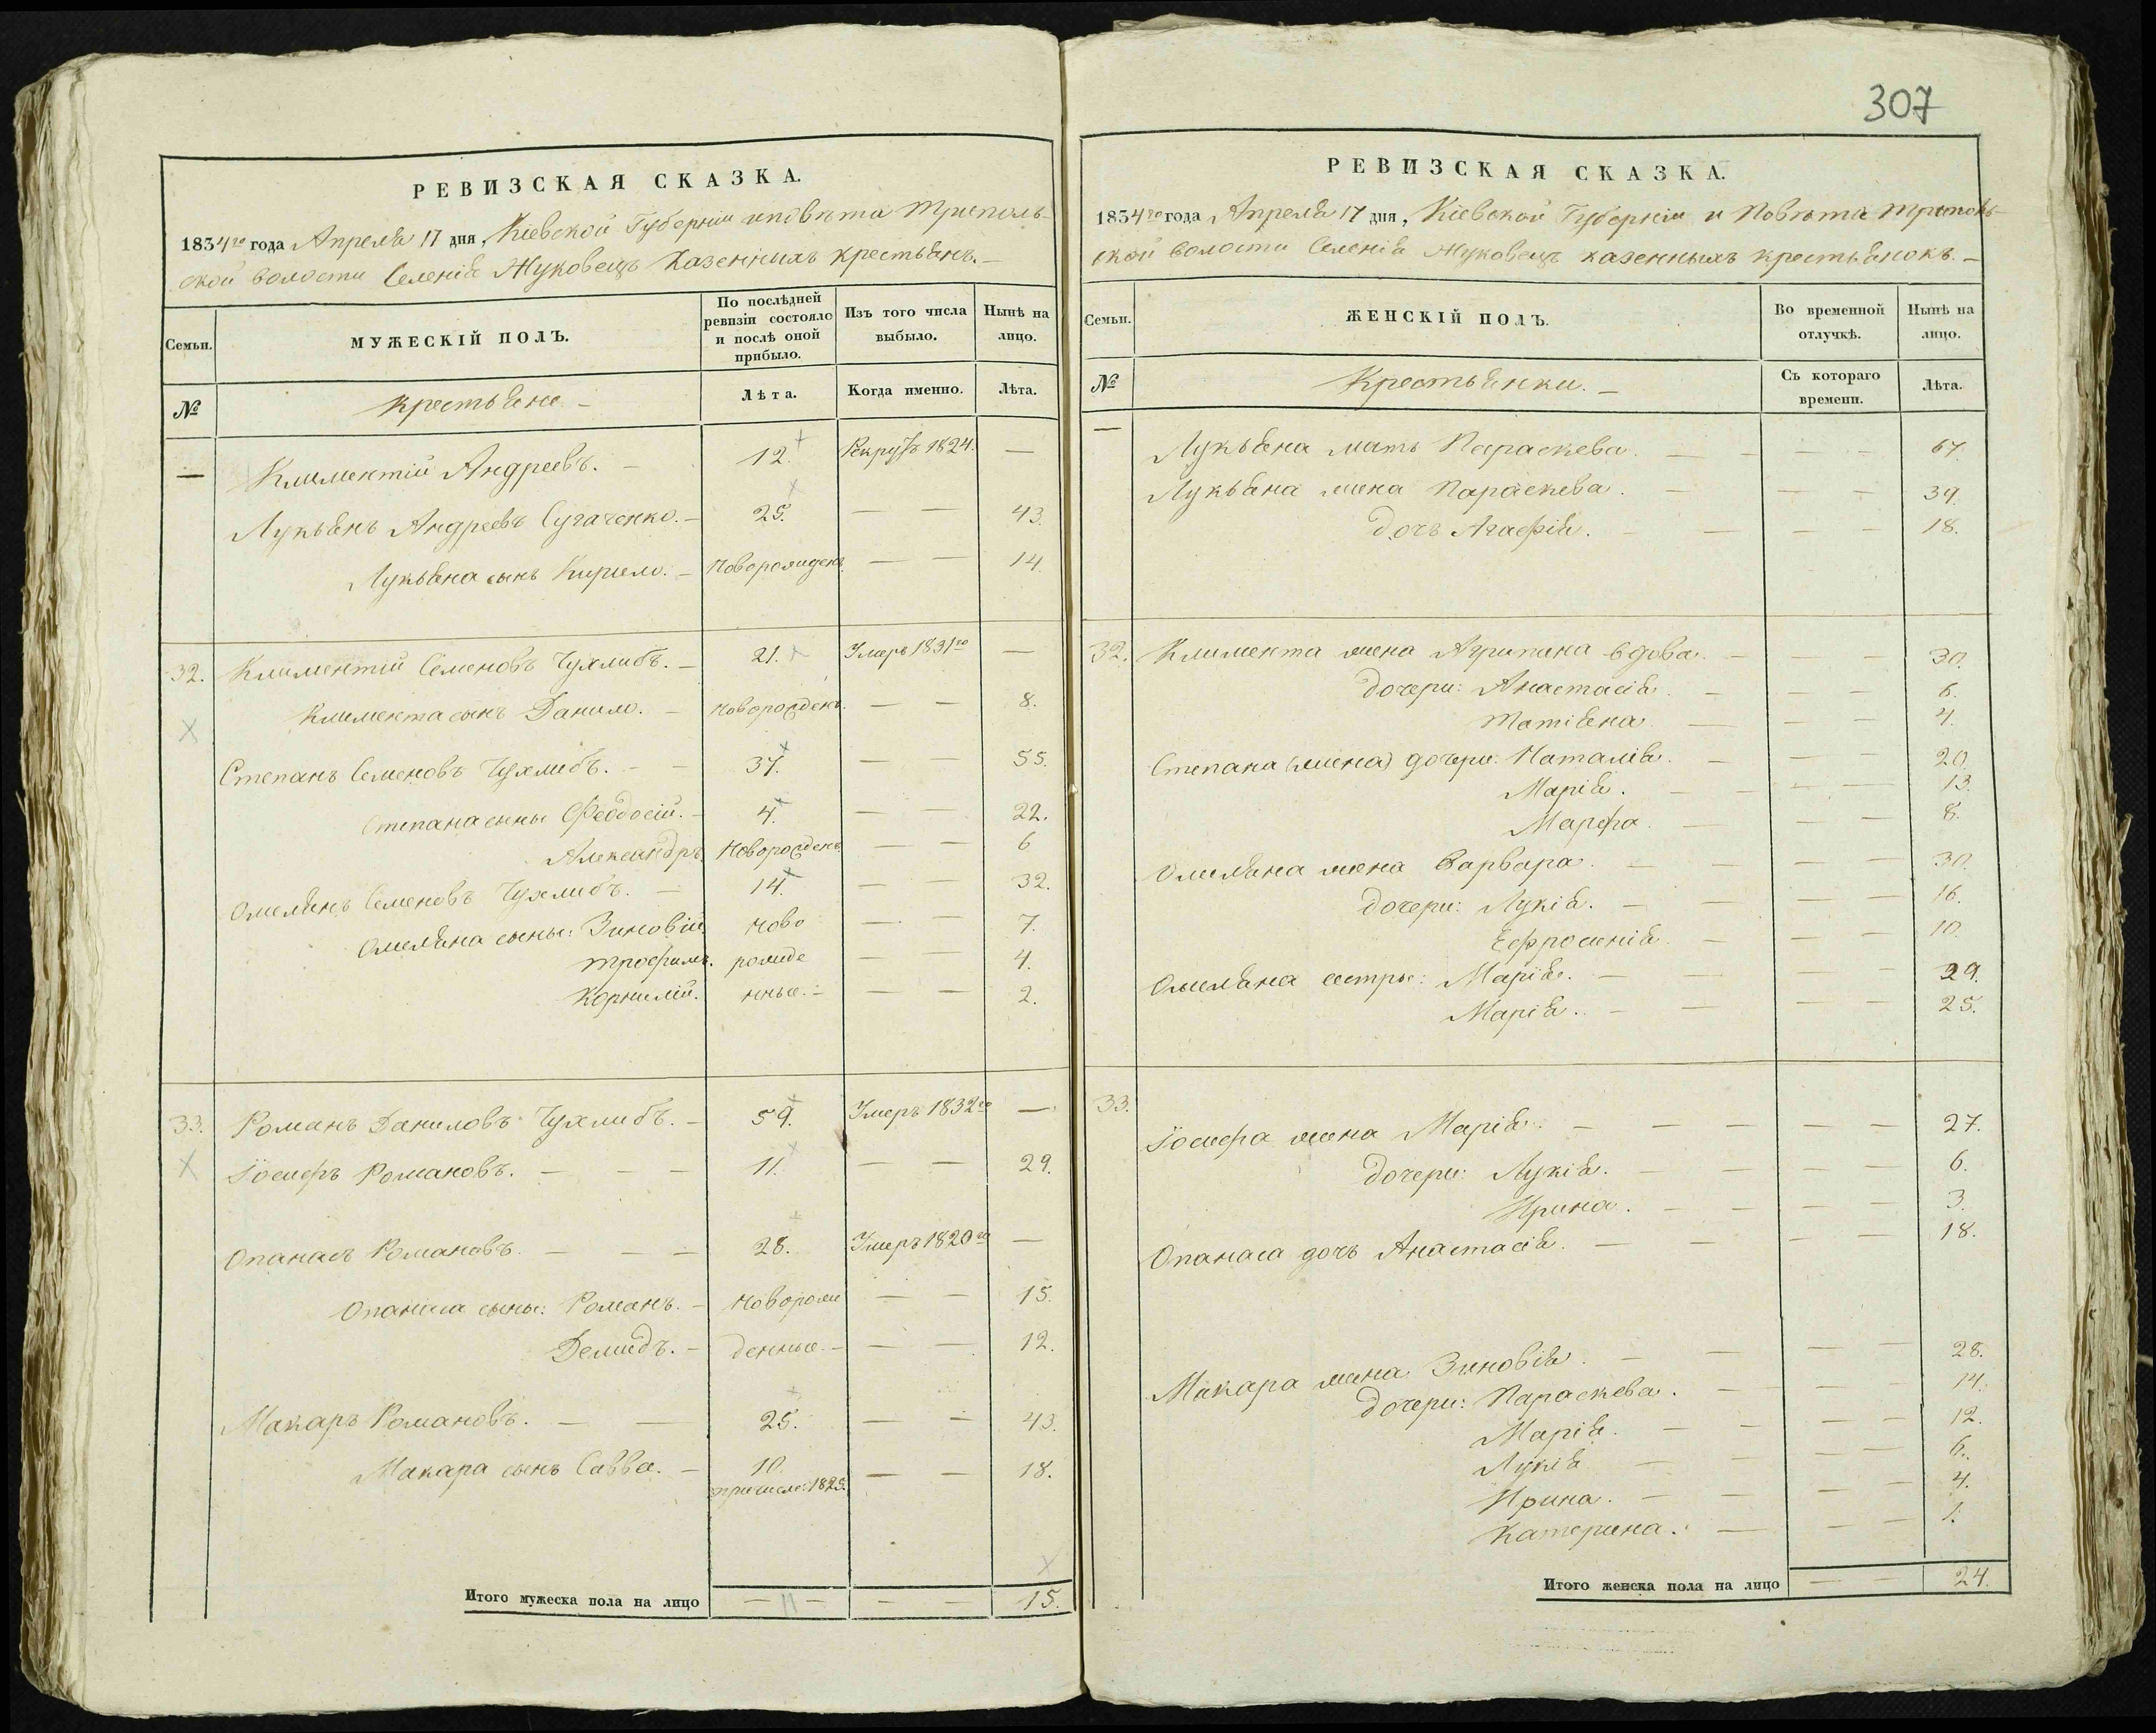 РЕВИЗСКАЯ СКАЗКА.
1834го года Апреля 17 дня, Кіевской Губерніи и повѣта Триполь-
ской волости Селенія Жуковецъ казенныхъ крестьянъ.—
Семьи. МУЖЕСКІЙ ПОЛЪ. По послѣдней ревизіи состояло и послѣ оной прибыло. Изъ того числа выбыло. Нынѣ на лицо.
№ Крестьяне.— Лѣта. Когда именно. Лѣта.
— Климентій Андреевъ. — 12. Рекрутъ 1824. —
Лукьянъ Андреевъ Сугаченко. — 25. — — 43.
Лукьяна сынъ Кирило. — Новорожденъ. — — 14.
32. Климентій Семеновъ Чухлибъ. — 21. Умеръ 1831го —
Климента сынъ Данило. — новорожденъ. — — 8.
Степанъ Семеновъ Чухлибъ. — — 37. — — 55.
Степана сыны Феодосій. — 4. — — 22.
Александръ. Новорожденъ — — 6
Омелянъ Семеновъ Чухлибъ. — 14. — — 32.
Омеляна сыны: Зиновій ново — — 7.
Трофимъ. рожде — — 4.
Корнилій. нные.— — — 2.
33. Романъ Даниловъ Чухлибъ. — 59. Умеръ 1832го —
Іосифъ Романовъ. — — — 11. — — 29.
Опанасъ Романовъ. — — — 28. Умеръ 1820го —
Опанаса сыны: Романъ. — Новорож — — 15.
Демидъ. — денные.— — — 12.
Макаръ Романовъ. — — 25. — — 43.
Макара сынъ Савва. — 10. — — 18.
причисле: 1825.
Итого мужеска пола на лицо — 11 — — — 15.
307
РЕВИЗСКАЯ СКАЗКА.
1834го года Апреля 17 дня, Кіевской Губерніи и Повѣта Триполь-
ской волости Селенія Жуковецъ казенныхъ крестьянокъ.—
Семьи. ЖЕНСКІЙ ПОЛЪ. Во временной отлучкѣ. Нынѣ на лицо.
№ Крестьянки.— Съ котораго времени. Лѣта.
— Лукьяна мать Параскева. — — — — 67.
Лукьяна жена Параскева. — — — 39.
дочь Агафія. — — — — 18.
32. Климента жена Агрипина вдова. — — — 30.
дочери: Анастасія. — — — 6.
Татіяна. — — — 4.
Степана (жена) дочери: Наталія. — — — 20.
Марія. — — — — 13.
Марфа. — — — 8.
Омеляна жена Варвара. — — — — 30.
дочери: Лукія. — — — — 16.
Ефросинія. — — — 10.
Омеляна сестры: Марія. — — — 29.
Марія. — — — — 25.
33.
Іосифа жена Марія. — — — — — 27.
дочери: Лукія. — — — — 6.
Ирина. — — — — 3.
Опанаса дочь Анастасія. — — — — 18.
Макара жена Зиновія. — — — — 28.
дочери: Параскева. — — — 14.
Марія. — — — — 12.
Лукія — — — — 6.
Ирина. — — — — 4.
Катерина. — — — 1.
Итого женска пола на лицо — — 24.